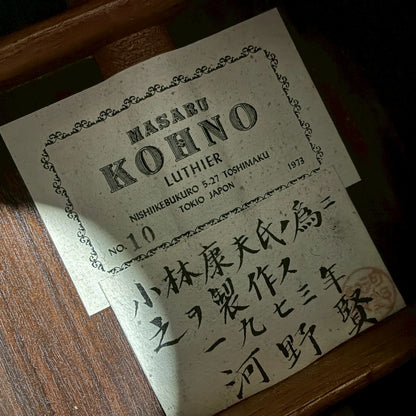 MASARU
KOHNO
LUTHIER
NISHIIKEBUKURO 5-27 TOSHIMAKU
TOKIO JAPON 1973
NO. 10
小林康夫氏ノ為ニ
之ヲ製作ス
一九七三年
河野賢